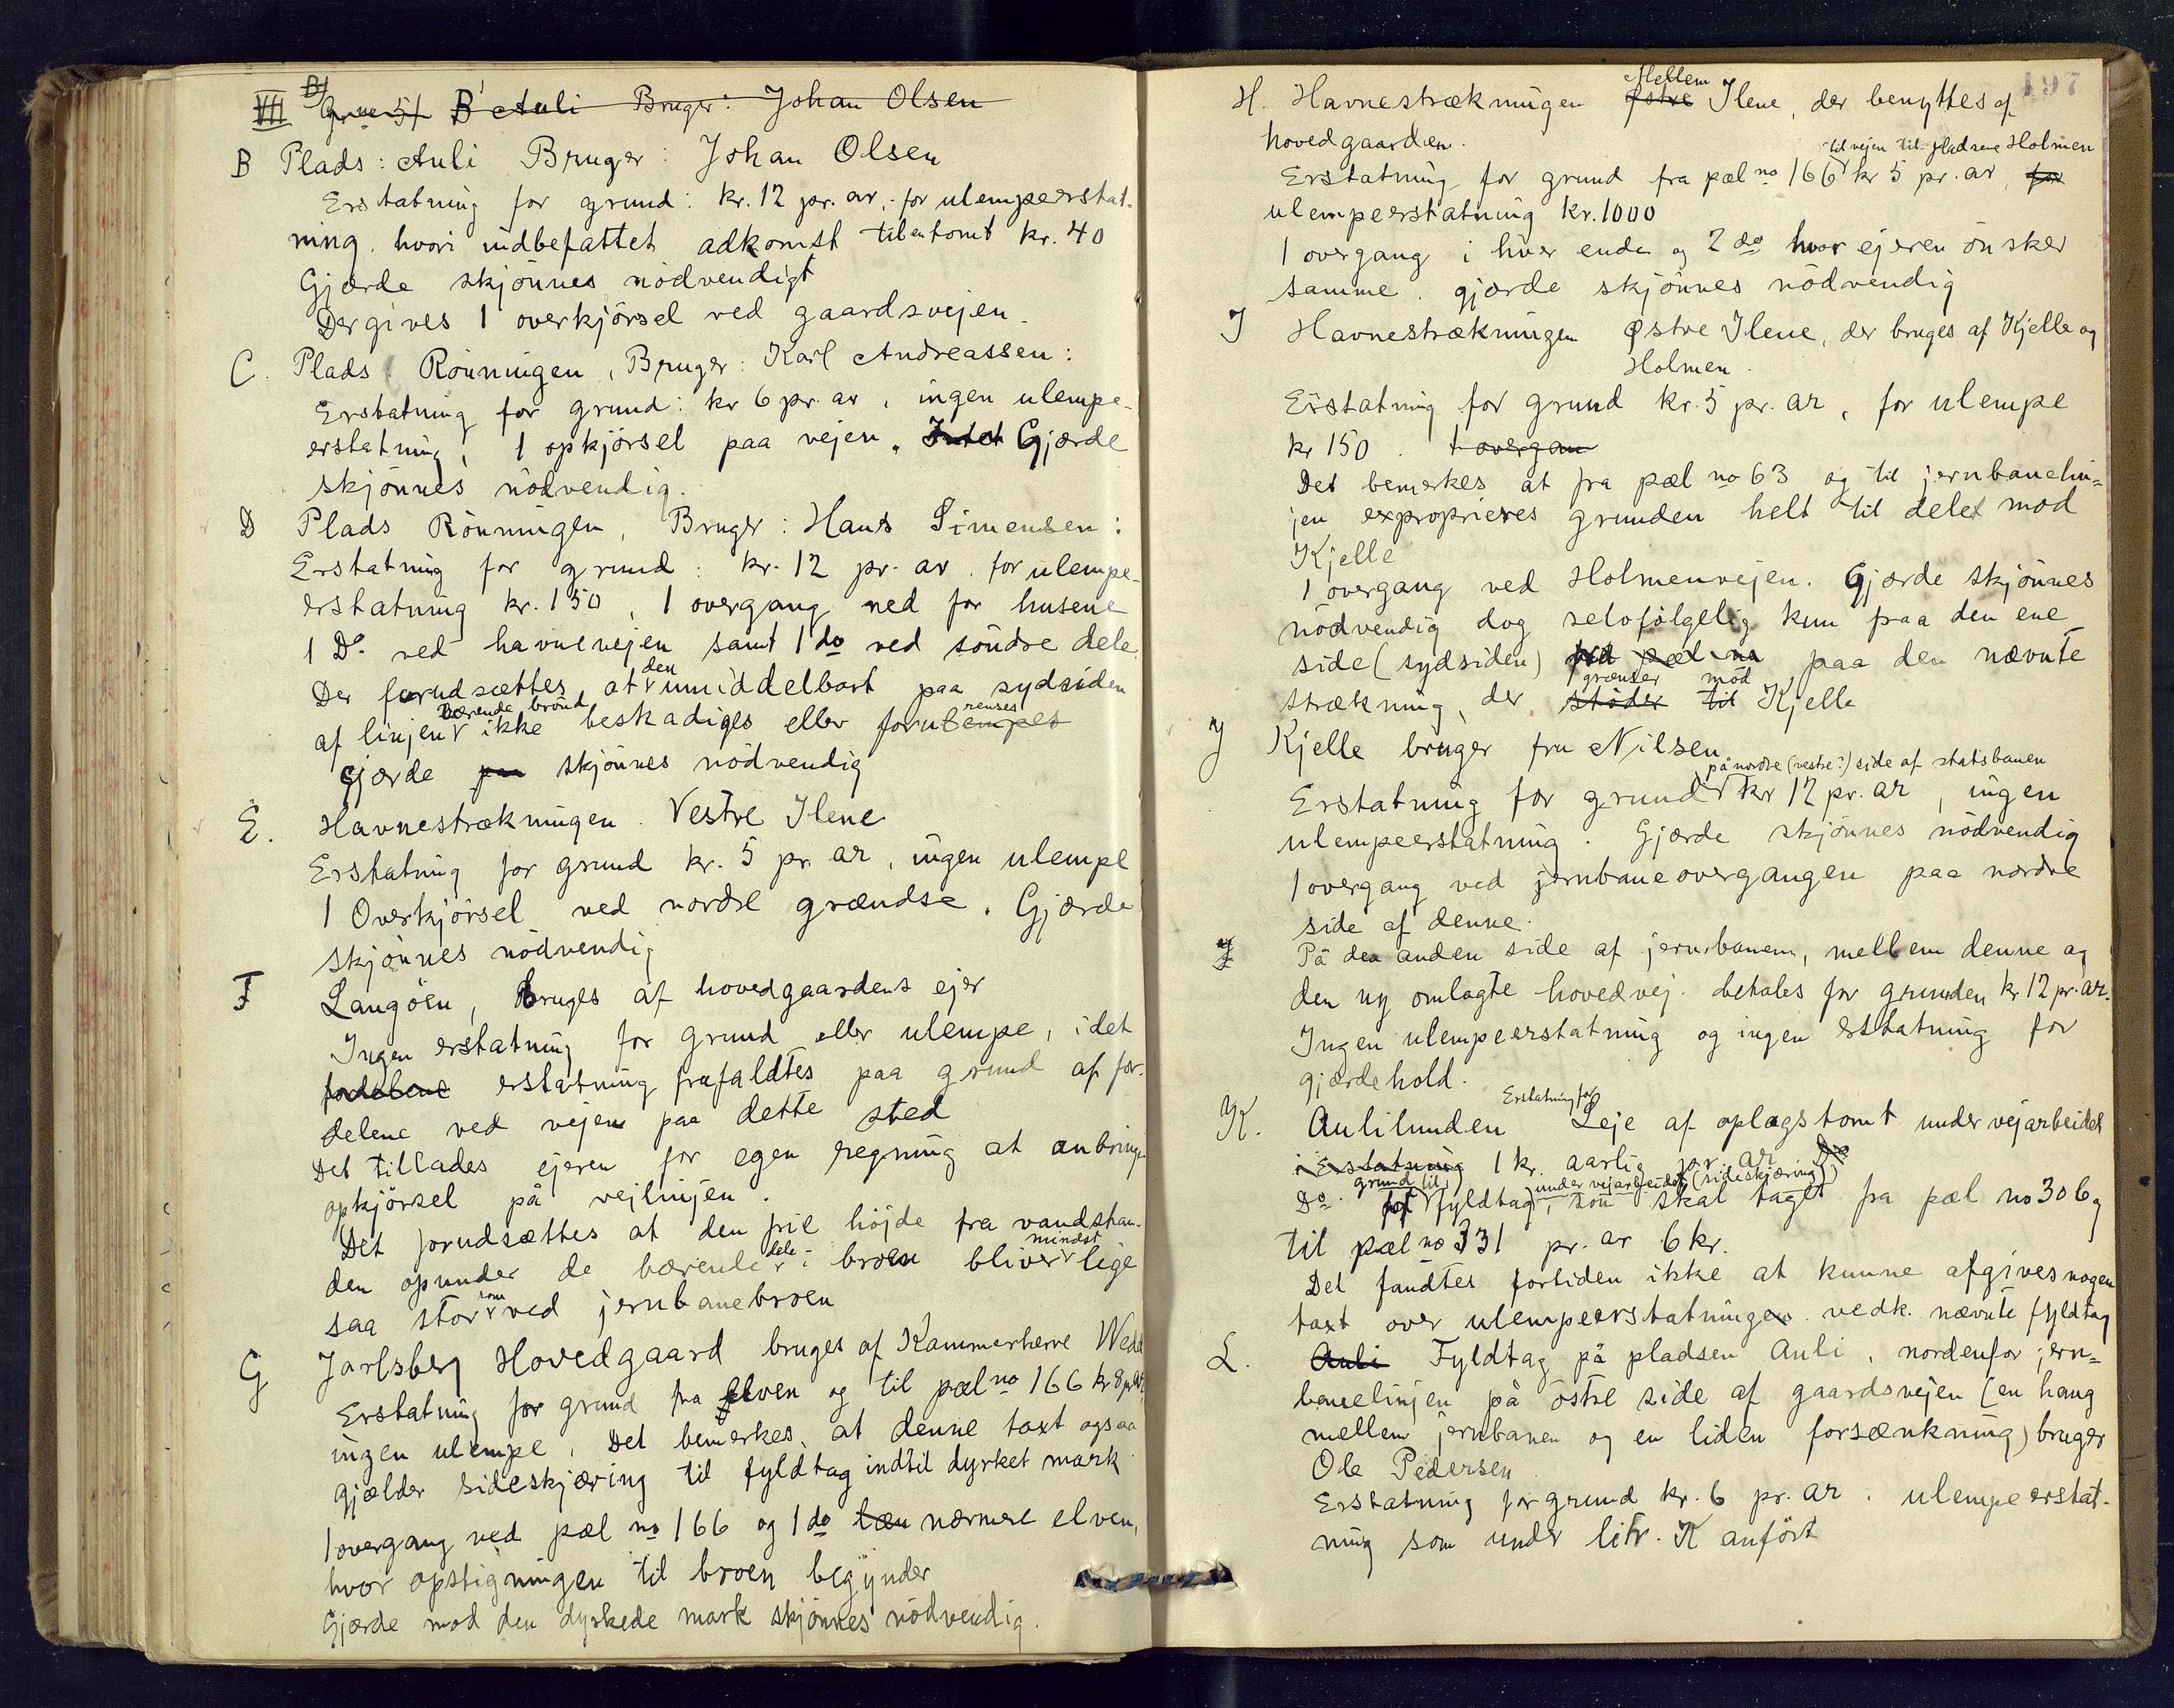 VII B) Gr. no 5/1 B Auli Bruger: Johan Olsen
B Plads: Auli Bruger: Johan Olsen
Erstatning for grund: kr. 12 pr. ar, for ulempeerstat-
ning hvori indbefattet adkomst til en tomt kr. 40
Gjærde skjönnes nödvendigt
Der gives 1 overkjörsel ved gaardsvejen.
C. Plads Rönningen, Bruger: Karl Andreassen:
Erstatning for grund: kr 6 pr. ar, ingen ulempe-
erstatning, 1 opkjörsel paa vejen. Intet Gjærde
skjönnes nödvendig.
D Plads Rönningen, Bruger: Hans Simensen:
Erstatning for grund: kr. 12 pr. ar. for ulempe-
erstatning kr. 150, 1 overgang ned for husene
1 Do ved havnevejen samt 1 do ved söndre dele
Der forudsættes, at den umiddelbart paa sydsiden
af linjen værende brönd ikke beskadiges eller forulempes renses
Gjærde paa skjönnes nödvendig
E. Havnestrækningen. Vestre Ilene
Erstatning for grund kr. 5 pr. ar, ingen ulempe
1 Overkjörsel ved nordre grændse. Gjærde
skjönnes nödvendig
F Langöen, Bruges af hovedgaardens ejer
Ingen erstatning for grund eller ulempe, idet
fordelene erstatning frafaldtes paa grund af for-
delene ved vejen paa dette sted
Det tillades ejeren for egen regning at anbringe
opkjörsel på vejlinjen.
Det forudsættes at den frie höjde fra vandstan-
den opunder de bærende dele i broen bliver mindst lige
saa stor som ved jernbanebroen
G Jarlsberg Hovedgaard bruges af Kammerherre Wedel
Erstatning for grund fra elven og til pæl no 166 kr 8 pr. ar,
ingen ulempe. Det bemerkes, at denne taxt ogsaa
gjælder sideskjæring til fyldtag indtil dyrket mark
1 overgang ved pæl no 166 og 1 do læn nærmere elven,
hvor opstigningen til broen begynder
Gjærde mod den dyrkede mark skjönnes nödvendig.
197
H. Havnestrækningen Østre Mellem Ilene, der benyttes af
hovedgaarden.
Erstatning for grund fra pæl no 166 til vejen til pladsene Holmen kr 5 pr. ar, for
ulempeerstatning kr. 1000
1 overgang i hver ende og 2 do hvor ejeren önsker
samme. gjærde skjönnes nödvendig
I Havnestrækningen Østre Ilene, der bruges af Kjelle og
Holmen.
Erstatning for grund kr. 5 pr. ar, for ulempe
kr 150. 1 overgan
Det bemerkes at fra pæl no 63 og til jernbanelin-
jen exproprieres grunden helt til delet mod
Kjelle
1 overgang ved Holmenvejen. Gjærde skjönnes
nödvendig dog selvfölgelig kun paa den ene
side (sydsiden) ved pæl no paa den nævnte
strækning, der stöder til grænser mod Kjelle
J Kjelle bruger fru Nilsen
Erstatning for grund på nordre (vestre?) side af statsbanen kr 12 pr. ar, ingen
ulempeerstatning. Gjærde skjönnes nödvendig
1 overgang ved jernbaneovergangen paa nordre
side af denne.
J På den anden side af jernbanen, mellem denne og
den ny omlagte hovedvej. betales for grunden kr 12 pr. ar.
Ingen ulempeerstatning og ingen erstatning for
gjærdehold.
K. Aulilunden Erstatning for Leje af oplagstomt under vejarbeidet
i Erstatning 1 kr. aarlig pr. ar Do
Do. for grund til fyldtag, under vejarbeidet (sideskjæring) som skal tages fra pæl no 306 og
til pæl no 331 pr. ar 6 kr.
Det fandtes fortiden ikke at kunne afgives nogen
taxt over ulempeerstatningen vedk. nævnte fyldtag
L. Auli Fyldtag på pladsen Auli, nordenfor jern-
banelinjen på östre side af gaardsvejen (en haug
mellem jernbanen og en liden forsænkning) bruger
Ole Pedersen
Erstatning for grund kr. 6 pr. ar. ulempeerstat-
ning som under litr. K anfört